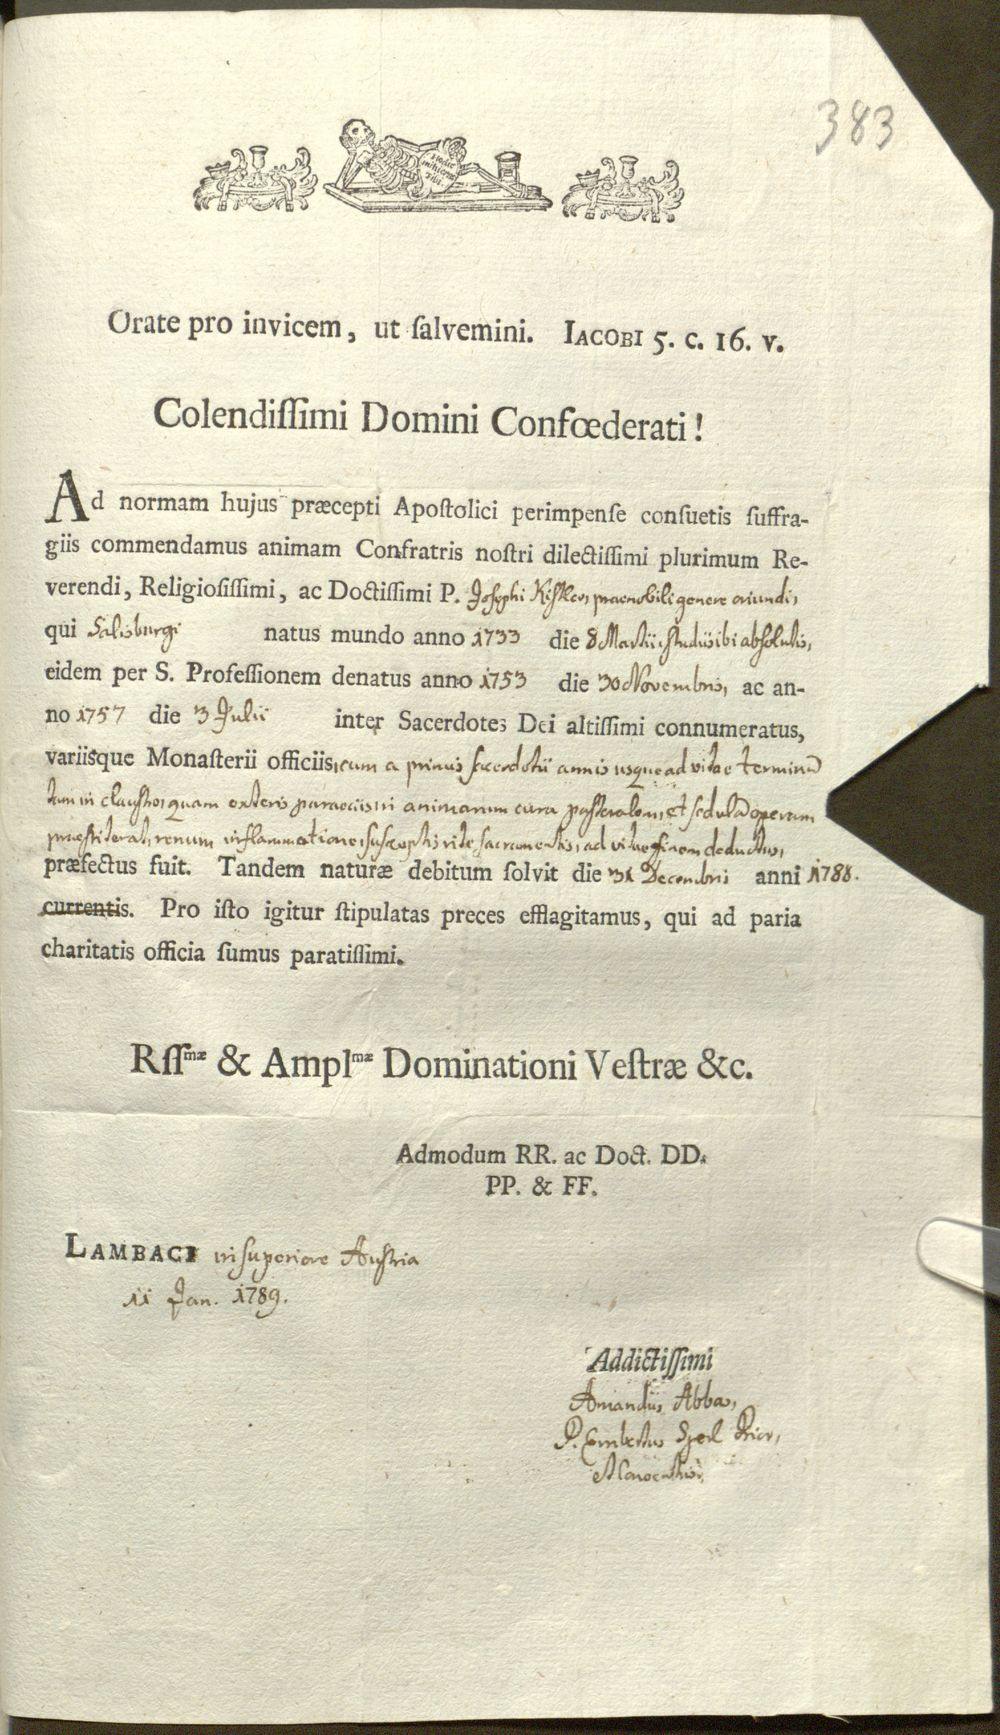 383
hodie mihi cras tibi
Orate pro invicem, ut ſalvemini. IACOBI 5. c. 16. v.
Colendiſſimi Domini Confœderati!
Ad normam hujus præcepti Apoſtolici perimpenſe conſuetis ſuffra-
giis commendamus animam Confratris noſtri dilectiſſimi plurimum Re-
verendi, Religioſiſſimi, ac Doctiſſimi P. Josephi praenobili genere oriundi,
qui Salisburgi natus mundo anno 1733 die 8 Martii, studiis ibi absolutis,
eidem per S. Profeſſionem denatus anno 1753 die 30 Novembris, ac an-
no 1757 die 3 Julii inter Sacerdotes Dei altiſſimi connumeratus,
variisque Monaſterii officiis, cum a primis sacerdotii annis usque ad vitae terminū
tam in claustro, quam exteris paraeciis in animarum cura pastoralem, et sedulā operam
praestiterat, renum inflammatione, susceptis rite sacramentis, ad vitae finem deductus,
præfectus fuit. Tandem naturæ debitum ſolvit die 31 Decembris anni 1788.
currentis. Pro iſto igitur ſtipulatas preces efflagitamus, qui ad paria
charitatis officia ſumus paratiſſimi.
Rſſmæ & Amplmæ Dominationi Veſtræ &c.
Admodum RR. ac Doct. DD.
PP. & FF.
LAMBACI in superiore Austria
11 Jan. 1789.
Addictiſſimi
Amandus Abbas,
P. Prior,
et Conventus